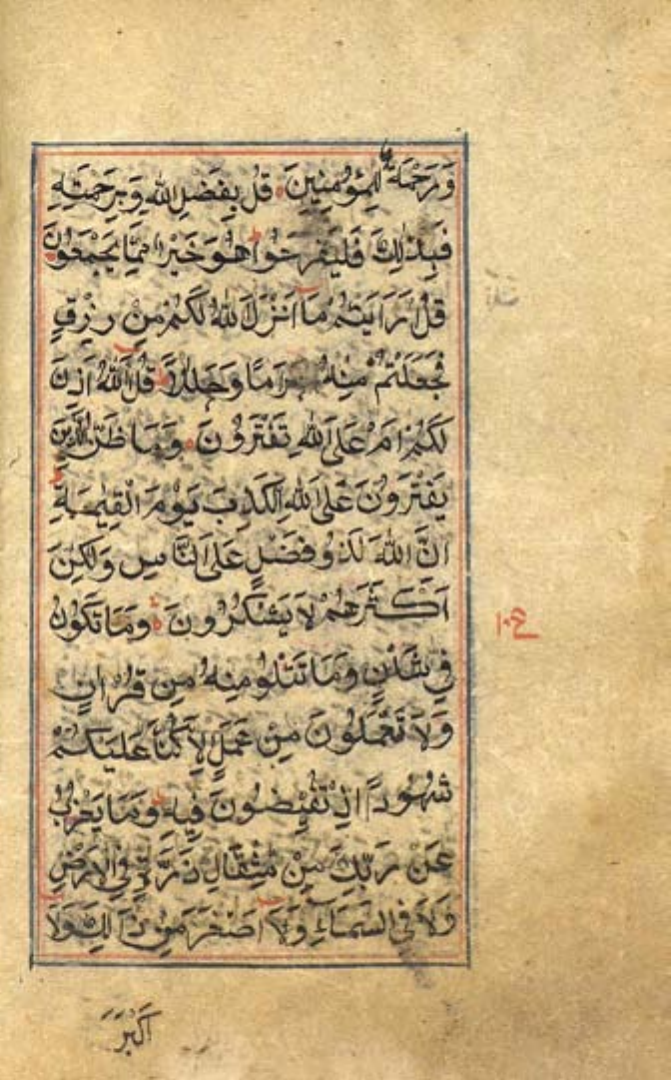 وَرَحْمَةٌ لِلْمُؤْمِنِينَ قُلْ بِفَضْلِ اللّٰهِ وَبِرَحْمَتِهِ
فَبِذٰلِكَ فَلْيَفْرَحُوا هُوَ خَيْرٌ مِمَّا يَجْمَعُونَ
قُلْ اَرَاَيْتُمْ مَا اَنْزَلَ اللّٰهُ لَكُمْ مِنْ رِزْقٍ
فَجَعَلْتُمْ مِنْهُ حَرَامًا وَحَلٰلًا قُلْ اٰللّٰهُ اَذِنَ
لَكُمْ اَمْ عَلَى اللّٰهِ تَفْتَرُونَ وَمَا ظَنُّ الَّذِينَ
يَفْتَرُونَ عَلَى اللّٰهِ الْكَذِبَ يَوْمَ الْقِيٰمَةِ
اِنَّ اللّٰهَ لَذُو فَضْلٍ عَلَى النَّاسِ وَلٰكِنَّ
اَكْثَرَهُمْ لَا يَشْكُرُونَ وَمَا تَكُونُ
فِي شَأْنٍ وَمَا تَتْلُو مِنْهُ مِنْ قُرْاٰنٍ
وَلَا تَعْمَلُونَ مِنْ عَمَلٍ اِلَّا كُنَّا عَلَيْكُمْ
شُهُودًا اِذْ تُفِيضُونَ فِيهِ وَمَا يَعْزُبُ
عَنْ رَبِّكَ مِنْ مِثْقَالِ ذَرَّةٍ فِي الْاَرْضِ
وَلَا فِي السَّمَاءِ وَلَا اَصْغَرَ مِنْ ذٰلِكَ وَلَا
اَكْبَرَ